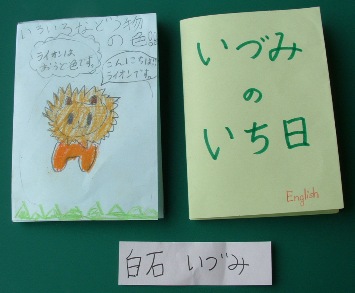 いろいろなどうぶつ物
の色
ライオンは
おうど色です。
こんにちは!!
ライオンです。
いづみ
の
いち日
English
白石 いづみ